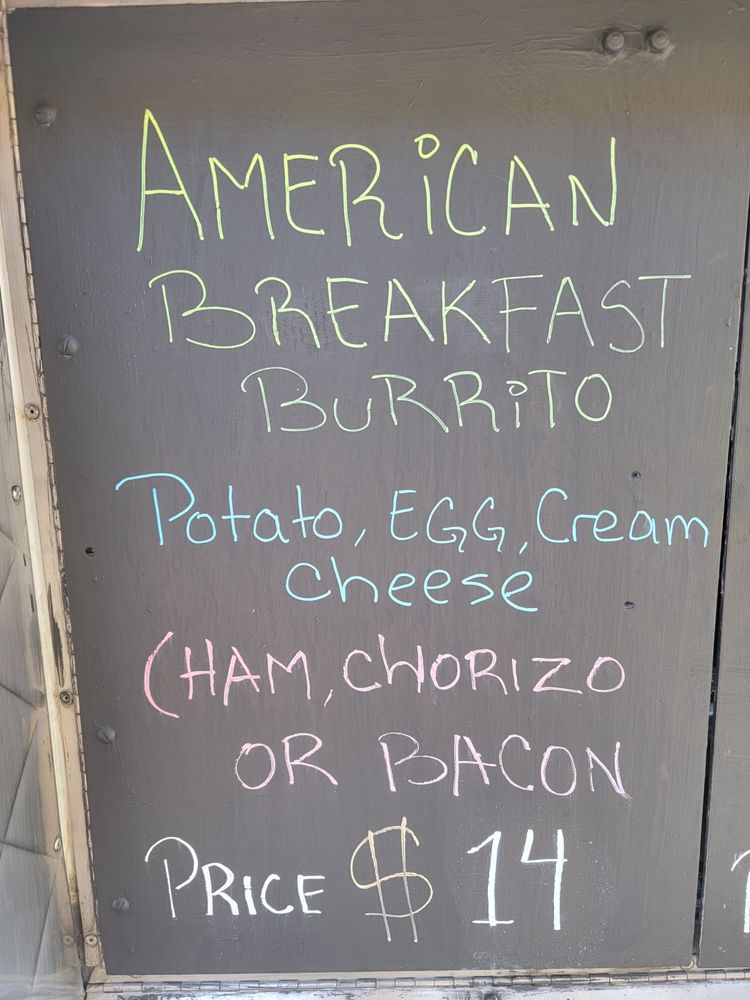 AMERiCAN
BREAKFAST
BURRiTO
Potato, EGG, Cream
cheese
(HAM, CHORIZO
OR BACON
PRICE $ 14